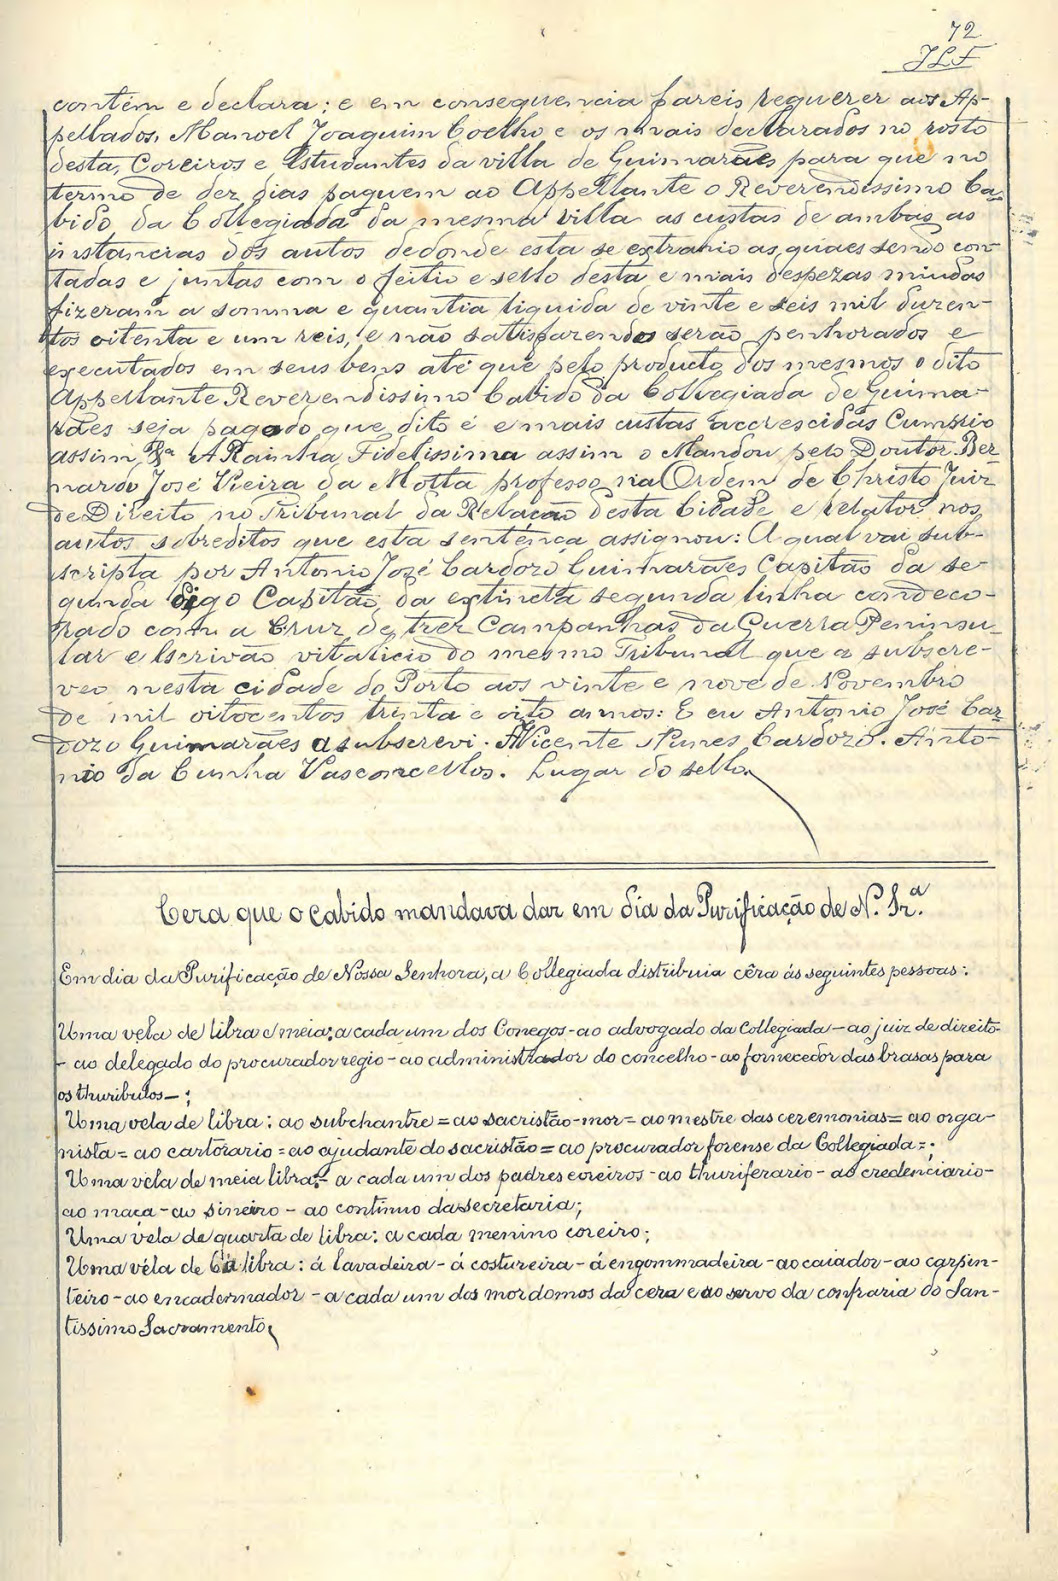 72
JLF
contém e declara: e em consequencia fareis requerer aos Ap-
pellados, Manoel Joaquim Coelho e os mais declarados no rosto
desta, Coreiros e Estudantes da villa de Guimarães para que no
termo de dez dias paguem ao Appellante o Reverendissimo Ca-
bido da Collegiada da mesma villa as custas de ambas as
instancias dos autos dedonde esta se extrahio as quaes sendo con-
tadas e juntas com o feitio e sello desta e mais despezas miudas
fizeram a somma e quantia liquida de vinte e seis mil duzen-
tos oitenta e um reis, e não satisfazendo serão penhorados e
executados em seus bens até que pelo producto dos mesmos o dito
Appellante Reverendissimo Cabido da Collegiada de Guima-
rães seja pago do que dito é e mais custas accrescidas Cumprio
assim A Rainha Fidelissima assim o Mandou pelo Doutor Ber-
nardo José Vieira da Motta professo na Ordem de Christo Juiz
de Direito no Tribunal da Relação desta Cidade e relator nos
autos sobreditos que esta sentença assignou: A qual vai sub-
scripta por Antonio José Cardozo Guimarães Capitão da se-
gunda digo Capitão da extincta segunda linha condeco-
rado com a Cruz de trez Campanhas da Guerra Peninsu-
lar e Escrivão vitalicio do mesmo Tribunal que a subscre-
veo nesta cidade do Porto aos vinte e nove de Novembro
de mil oitocentos trinta e oito annos: E eu Antonio José Car-
dozo Guimarães a subscrevi. Vicente Nunes Cardozo. Anto-
nio da Cunha Vasconcellos. Lugar do sello.
Cera que o cabido mandava dar em dia da Purificação de N. Sr.ª
Em dia da Purificação de Nossa Senhora, a Collegiada distribuia cêra ás seguintes pessoas:
Uma vela de libra e meia: a cada um dos Conegos - ao advogado da Collegiada - ao juiz de direito-
- ao delegado do procurador regio - ao administrador do concelho - ao fornecedor das brasas para
os thuribulos - ;
Uma vela de libra: ao subchantre = ao sacristão-mor = ao mestre das ceremonias = ao orga-
nista = ao cartorario = ao ajudante do sacristão = ao procurador forense da Collegiada = ;
Uma vela de meia libra: - a cada um dos padres coreiros - ao thuriferario - ao credenciario -
ao maça - ao sineiro - ao continuo da secretaria;
Uma vela de quarta de libra: a cada menino coreiro;
Uma véla de libra: á lavadeira - á costureira - á engommadeira - ao caiador - ao carpin-
teiro - ao encadernador - a cada um dos mordomos da cera e ao servo da confraria do San-
tissimo Sacramento